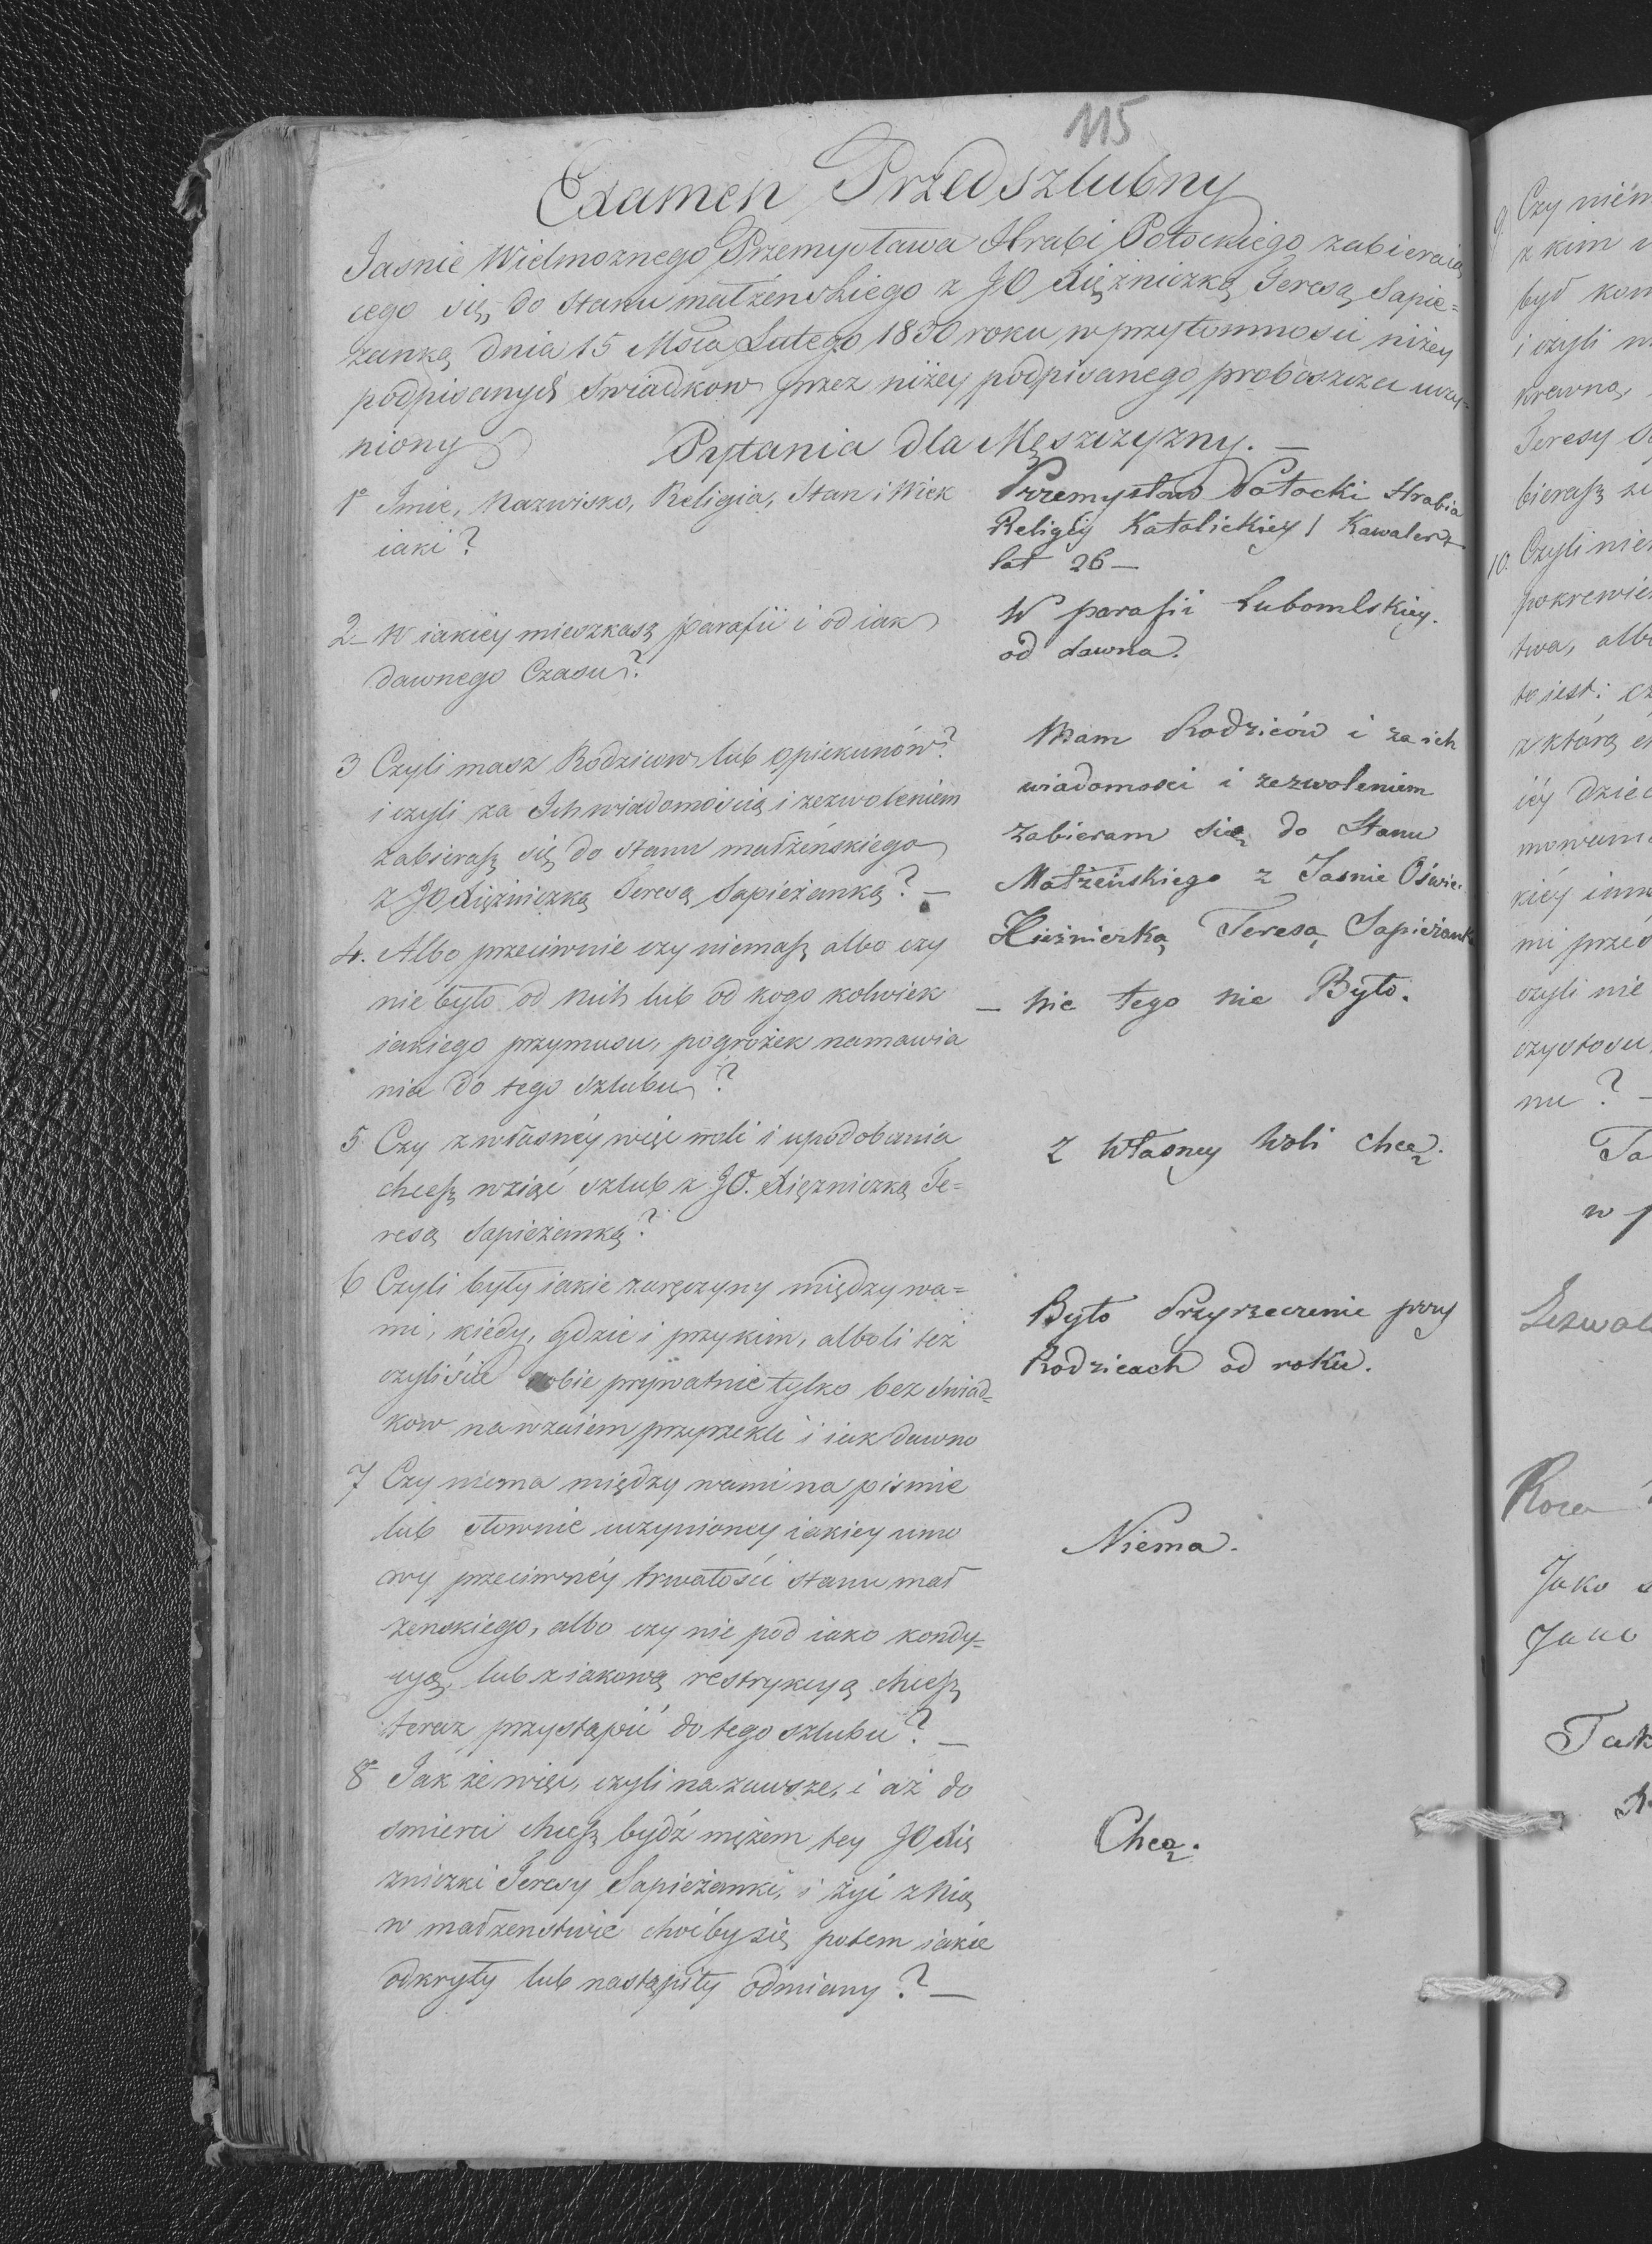 115
Examen Przedszlubny
Jasnie Wielmoznego Przemysława Hrabi Potockiego zabieraią
cego się do Stanu małżenskiego z JO Xiężniczką Teresą Sapie=
żanką dnia 15 Msca Lutego 1830 roku w przytomnosci niżey
podpisanych Swiadkow przez niżey podpisanego proboszcza uczy=
niony
Pytania dla Męszczyzny. —
1° Jmie, Nazwisko, Religia, Stan i Wiek
iaki?
Przemysław Potocki Hrabia
Religiy Katolickiey / Kawaler
lat 26 —
2 — W iakiey mieszkasz parafii i od iak
dawnego Czasu?
W parafii Lubomlskiey.
od dawna.
3 Czyli masz Rodzicow lub opiekunów?
i czyli za Ich wiadomością i zezwoleniem
zabierasz się do stanu małżeńskiego
z JO Xiężniczką Teresą Sapieżanką? —
Mam Rodziców i za ich
wiadomosci i zezwoleniem
zabieram się do Stanu
Małżeńskiego z Jasnie Oświe.
Xiężniczką Teresą Sapieżank
4. Albo przeciwnie czy niemasz albo czy
nie było od nich lub od kogo kolwiek
iakiego przymusu, pogrożek namawia
nia do tego szlubu?
— nic tego nie Było.
5 Czy z własnéy więc woli i upodobania
chcesz wziąć szlub z JO. Xiężniczką Te=
resą Sapieżanką?
Z Własney Woli chcę.
6 Czyli były iakie zaręczyny między wa=
mi, kiedy, gdzie i przy kim, alboli też
czyliście sobie prywatnie tylko bez swiad=
kow nawzaiem przyrzekli i iak dawno
Było Przyrzeczenie przy
Rodzicach od roku.
7 Czy niema między wami na pismie
lub słownie uczynioney iakiey umo
wy przeciwnéy trwałości stanu mał
żenskiego, albo czy nie pod iako kondy=
cyą, lub z iakową restrykcyą chcesz
teraz przystąpić do tego szlubu? —
Niema.
8° Jak że więc, czyli na zawsze, i aż do
smierci chcesz bydź mężem tey JO Xię
żniczki Teresy Sapieżanki, i żyć z Nią
w małżenstwie choćby się potem iakie
odkryły lub nastąpiły odmiany? —
Chcę.
9. Czy niém
z kim
był kom
i czyli
krewną
Teresy
bierasz
10. Czyli nie
pokrewie
twa, alb
to iest:
z którą
iéy dziec
kiéy inn
mi przed
czyli nie
czystosci
nu? —
w p
Zezwal
Jako
Tak